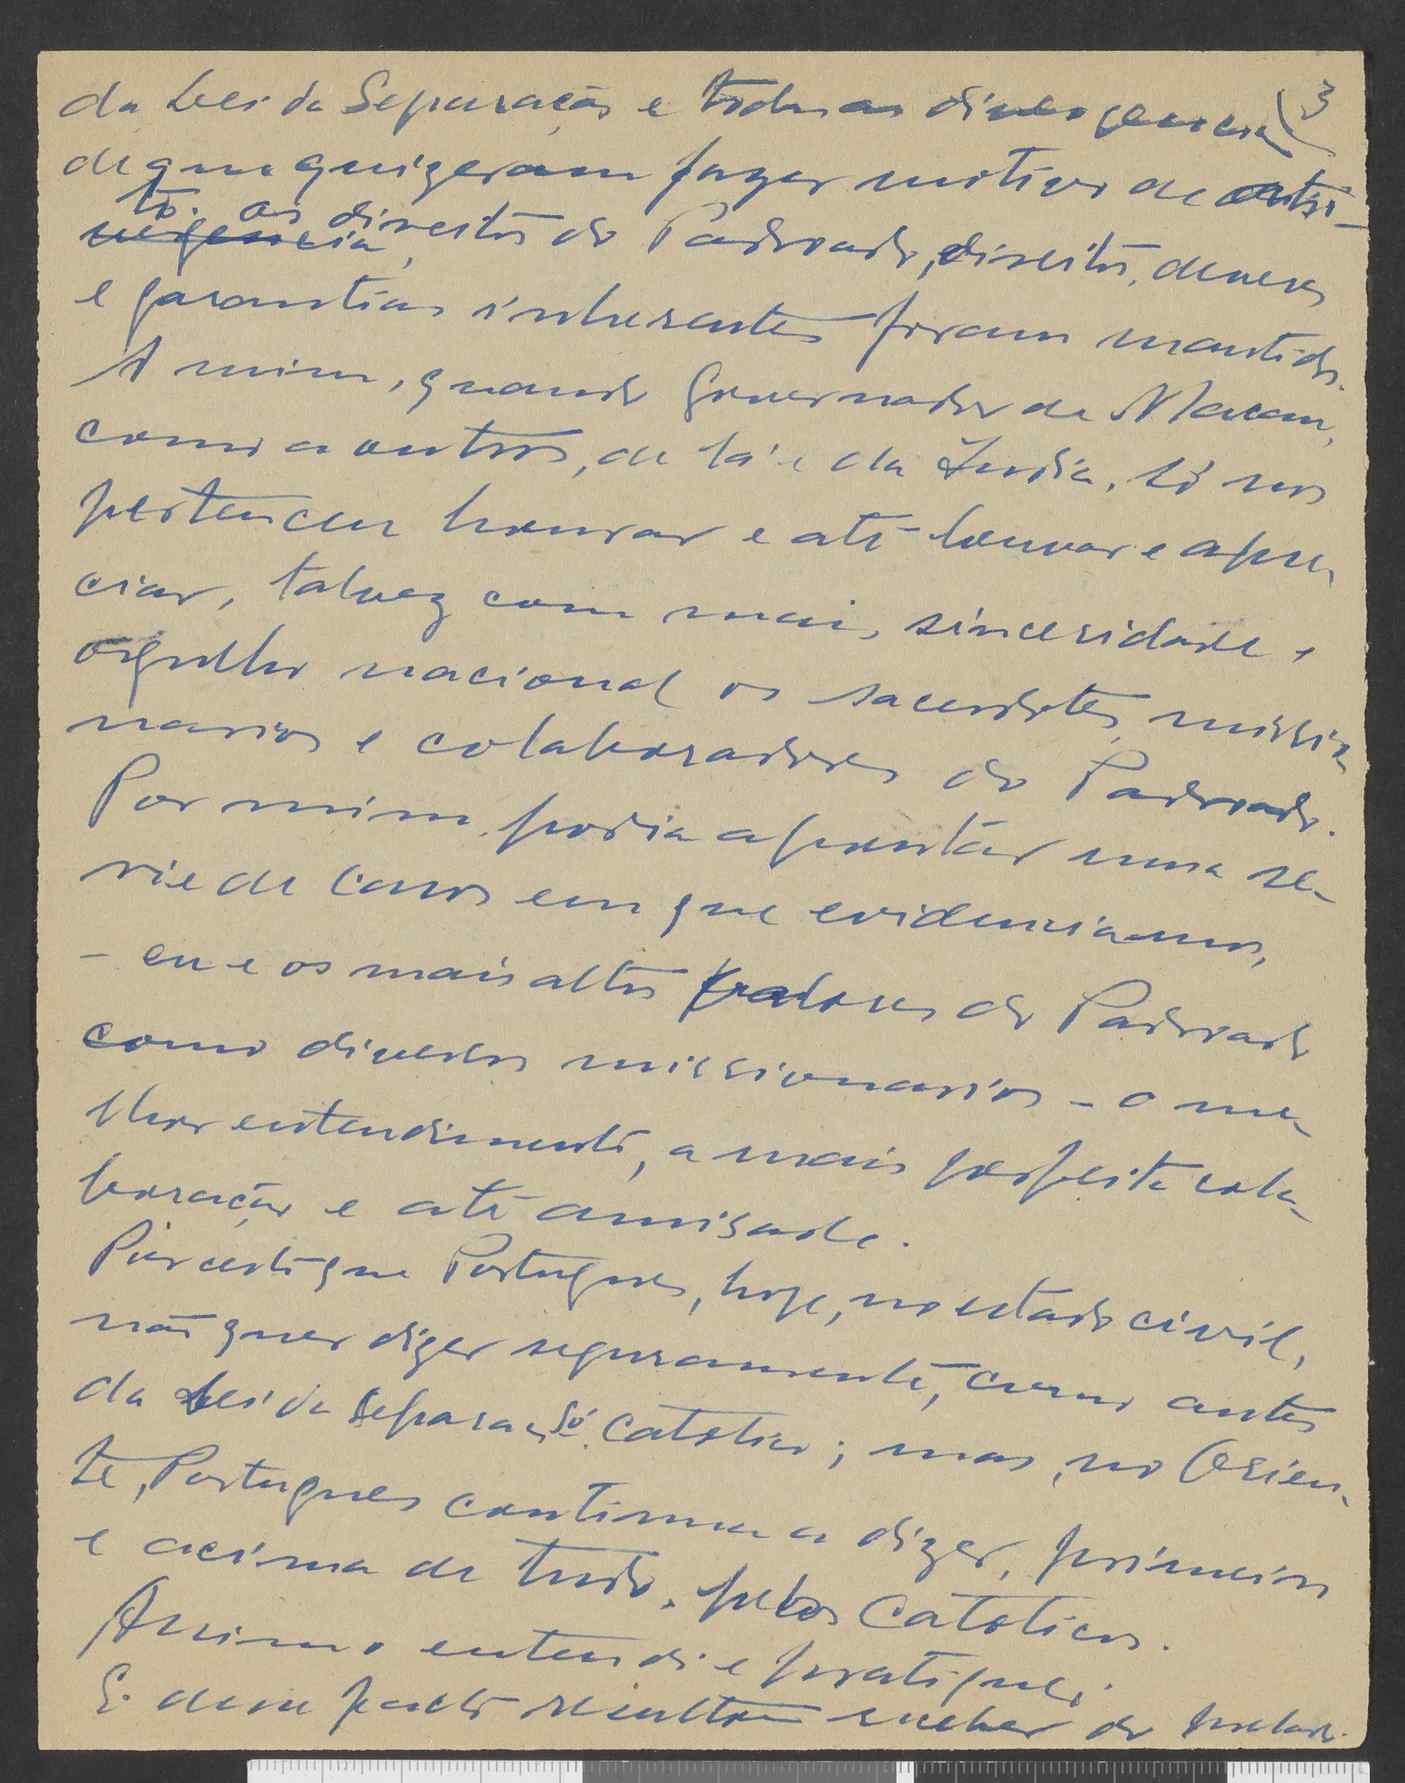 3
da Lei da Separação e todas as divergencias
de que quizeram fazer motivo de atri-
to. os direitos do Padroado, direitos, deveres
e garantias inherentes foram mantidos.
A mim, quando Governador de Macau,
como a outros, de lá e da India, só nos
pertenceu honrar e até louvar e apre-
ciar, talvez com mais sinceridade e
orgulho nacional os sacerdotes, missio-
narios e colaboradores do Padroado.
Por mim, podia apontar uma se-
rie de casos em que evidenciamos,
- eu e os mais altos valores do Padroado
como diversos missionarios - o me-
lhor entendimento, a mais perfeita cola-
boração e até amisade.
Por certo que Portugues, hoje, no estado civil,
não quer dizer seguramente, como antes
da Lei da Separação só Catolico; mas, no Orien-
te, Portugues continua a dizer, primeiro
e acima de tudo, Catolicos.
Assim o entendi e pratiquei.
E desse resultou receber do Prelado.